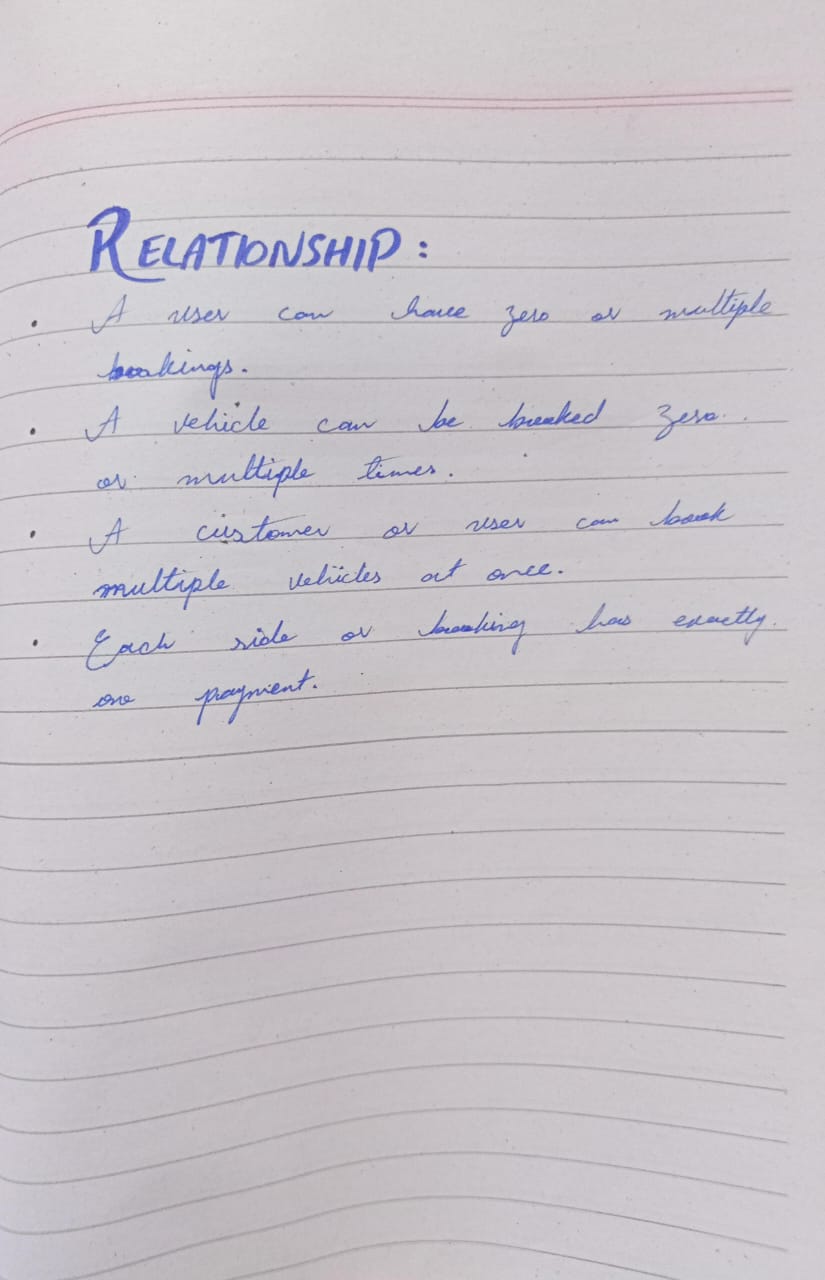 RELATIONSHIP:
• A user can have zero or multiple
bookings.
• A vehicle can be booked zero
or multiple times.
• A customer or user can book
multiple vehicles at once.
• Each ride or booking has exactly
one payment.